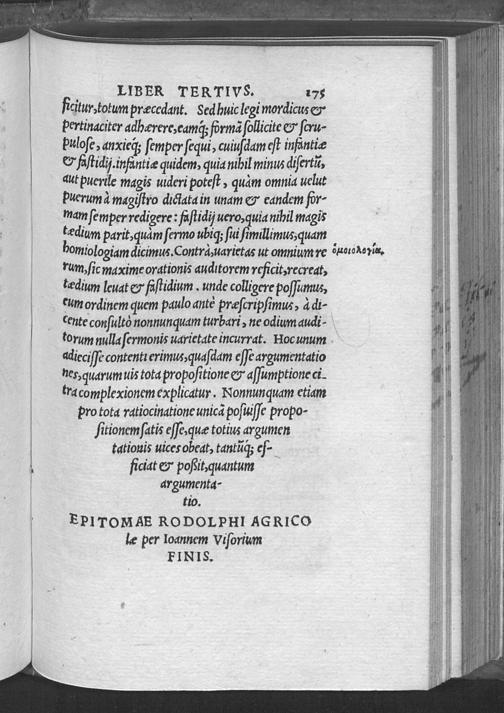 LIBER TERTIVS. 175
ficitur, totum præcedant. Sed huic legi mordicus &
pertinaciter adhærere, eamq́; formā sollicite & scru-
pulose, anxieq́; semper sequi, cuiusdam est infantiæ
& fastidij. infantiæ quidem, quia nihil minus disertū,
aut puerile magis uideri potest, quàm omnia uelut
puerum à magistro dictata in unam & eandem for-
mam semper redigere: fastidij uero, quia nihil magis
tædium parit, quàm sermo ubiq; sui simillimus, quam
homiologiam dicimus. Contrà, uarietas ut omnium re ὁμοιολογία.
rum, sic maxime orationis auditorem reficit, recreat,
tædium leuat & fastidium. unde colligere possumus,
eum ordinem quem paulo antè præscripsimus, à di-
cente consultò nonnunquam turbari, ne odium audi-
torum nulla sermonis uarietate incurrat. Hoc unum
adiecisse contenti erimus, quasdam esse argumentatio
nes, quarum uis tota propositione & assumptione ci-
tra complexionem explicatur. Nonnunquam etiam
pro tota ratiocinatione unicā posuisse propo-
sitionem satis esse, quæ totius argumen
tationis uices obeat, tantūq́; ef-
ficiat & poßit, quantum
argumenta-
tio.
EPITOMAE RODOLPHI AGRICO
læ per Ioannem Visorium
FINIS.